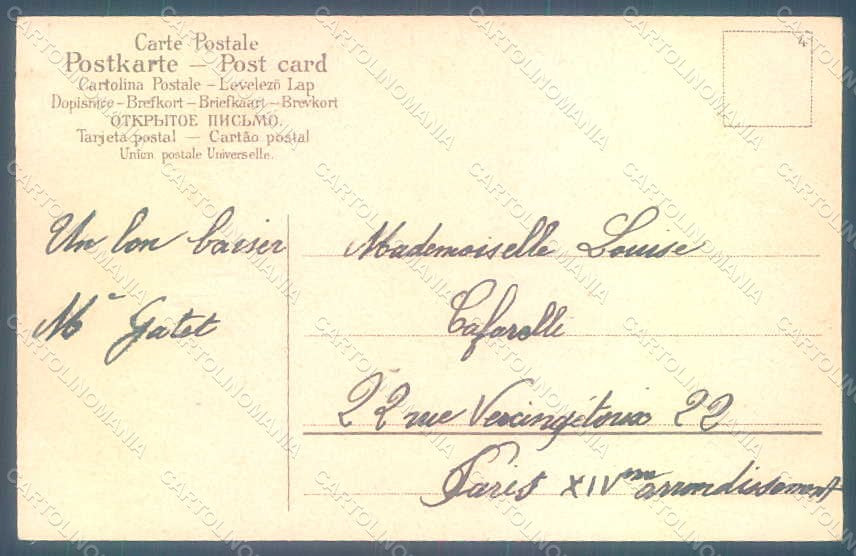 Carte Postale
Postkarte — Post card
Cartolina Postale – Levelező Lap
Dopisnice – Brefkort – Briefkaart – Brevkort
ОТКРЫТОЕ ПИСЬМО.
Tarjeta postal — Cartão postal
Union postale Universelle.
4
Un bon baiser
Me Gatet
Mademoiselle Louise
Cafarelli
22 rue Vercingétorix 22
Paris XIVme arrondissement
CARTOLINOMANIA